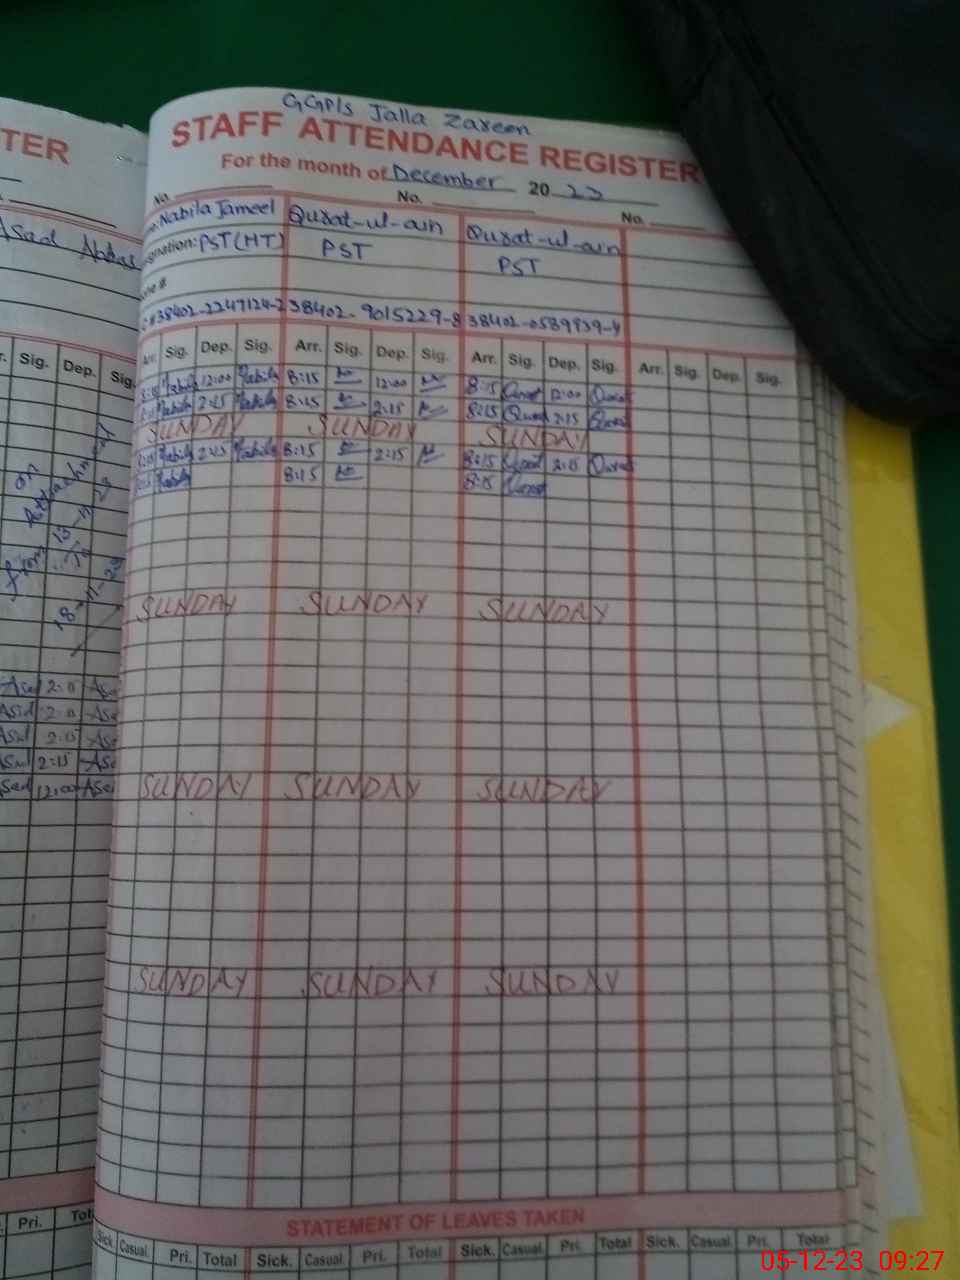 GGPls Jalla Zareen
TER
STAFF ATTENDANCE REGISTER
For the month of December 20 23
No. No. No.
Asad Abbas
Nabila Jameel Qurat-ul-ain Qurat-ul-ain
gnation: PST(HT) PST PST
38402-2247124-2 38402-9015229-8 38402-0589939-4
Sig. Dep. Sig.
Arr. Sig. Dep. Sig. Arr. Sig. Dep. Sig. Arr. Sig. Dep. Sig. Arr. Sig. Dep. Sig.
8:15 Nabila 12:00 Nabila 8:15 12:00 8:15 Qurat 12:00 Qurat
8:15 Nabila 2:15 Nabila 8:15 2:15 8:15 Qurat 2:15 Qurat
SUNDAY SUNDAY SUNDAY
8:15 Nabila 2:15 Nabila 8:15 2:15 8:15 Qurat 2:15 Qurat
8:15 Nabila 8:15 8:15 Qurat
on
Attachment
from 13-11-23
To
18-11-23
SUNDAY SUNDAY SUNDAY
Asad 2:15 Asa
Asad 2:15 Asa
Asad 2:15 Asa
Asad 2:15 Asa
Asad 12:00 Asa
SUNDAY SUNDAY SUNDAY
SUNDAY SUNDAY SUNDAY
STATEMENT OF LEAVES TAKEN
Pri. Tot
Sick. Casual. Pri. Total Sick. Casual. Pri. Total Sick. Casual. Pri. Total Sick. Casual. Pri. Total
05-12-23 09:27